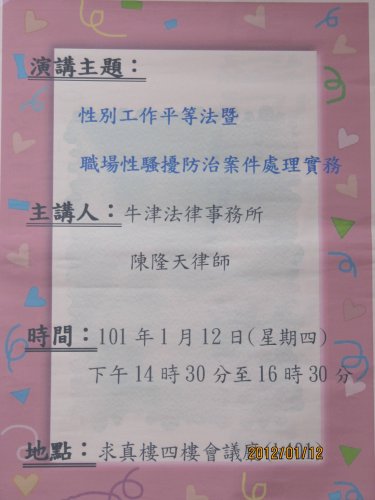 演講主題：
性別工作平等法暨
職場性騷擾防治案件處理實務
主講人：牛津法律事務所
陳隆天律師
時間：101 年 1 月 12 日(星期四)
下午 14 時 30 分至 16 時 30 分
地點：求真樓四樓會議
2012/01/12